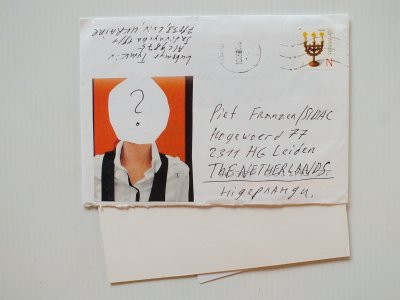 Lubomyr Tymkiv
Lviv, UKRAINE
?
N
Piet Franzen/SIDAC
Hogewoerd 77
2311 HG Leiden
THE NETHERLANDS
Нідерланди.